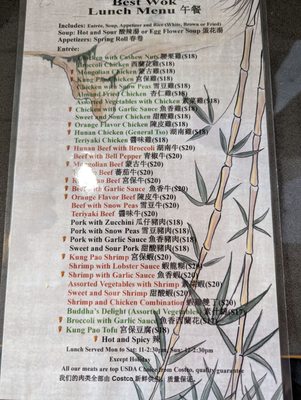 Best Wok
Lunch Menu 午餐
Includes: Entrée, Soup, Appetizer and Rice (White, Brown or Fried)
Soup: Hot and Sour 酸辣湯 or Egg Flower Soup 蛋花湯
Appetizers: Spring Roll 春卷
Entrée:
Chicken with Cashew Nuts 腰果雞($18)
Broccoli Chicken 西蘭花雞($18)
Mongolian Chicken 蒙古雞($18)
Kung Pao Chicken 宮保雞($18)
Chicken with Snow Peas 雪豆雞($18)
Almond Fried Chicken 杏仁雞($18)
Assorted Vegetables with Chicken 素菜雞($18)
Chicken with Garlic Sauce 魚香雞($18)
Sweet and Sour Chicken 甜酸雞($18)
Orange Flavor Chicken 陳皮雞($18)
Hunan Chicken (General Tso) 湖南雞($18)
Teriyaki Chicken 醬味雞($18)
Hunan Beef with Broccoli 湖南牛($20)
Beef with Bell Pepper 青椒牛($20)
Mongolian Beef 蒙古牛($20)
Beef 蕃茄牛($20)
Pao Beef 宮保牛($20)
Beef with Garlic Sauce 魚香牛($20)
Orange Flavor Beef 陳皮牛($20)
Beef with Snow Peas 雪豆牛($20)
Teriyaki Beef 醬味牛($20)
Pork with Zucchini 瓜仔豬肉($18)
Pork with Snow Peas 雪豆豬肉($18)
Pork with Garlic Sauce 魚香豬肉($18)
Sweet and Sour Pork 甜酸豬肉($18)
Kung Pao Shrimp 宮保蝦($20)
Shrimp with Lobster Sauce 蝦龍糊($20)
Shrimp with Garlic Sauce 魚香蝦($20)
Assorted Vegetables with Shrimp 素菜蝦($20)
Sweet and Sour Shrimp 甜酸蝦($20)
Shrimp and Chicken Combination ($20)
Buddha's Delight (Assorted Vegetables)
Broccoli with Garlic Sauce
Kung Pao Tofu 宮保豆腐($18)
Hot and Spicy
Lunch Served Mon to Sat: 11-2:30pm
Except Holiday
All our meats are top USDA Choice from Costco, quality guarantee
我们的肉类全部由 Costco 新鲜供应，质量保证。